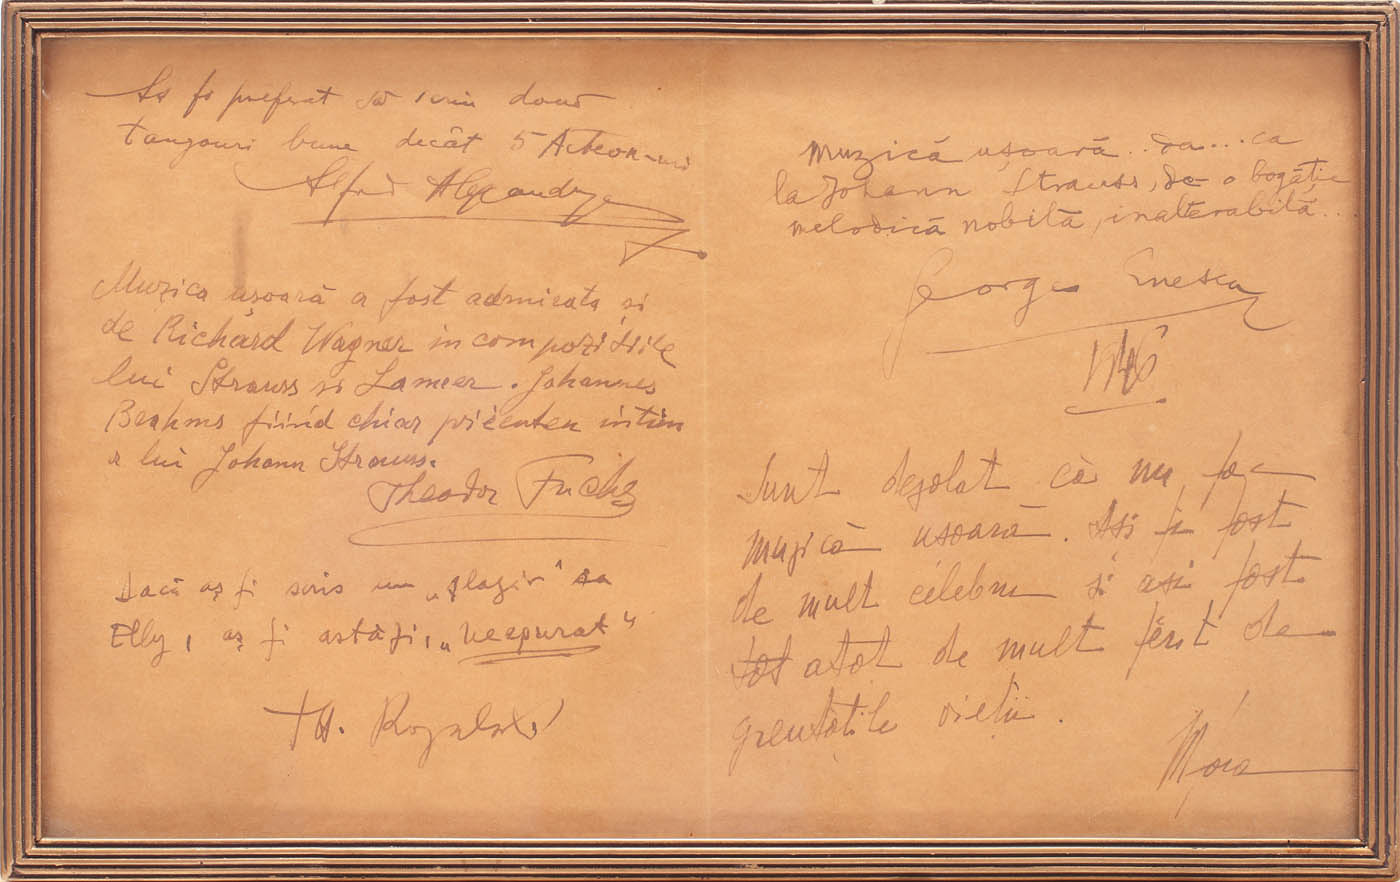 As fi preferat să scriu două
tangouri bune decât 5 Acteon-uri
Alfred Alessandrescu
Muzica uşoară a fost admirata si
de Richard Wagner in compoziţiile
lui Strauss si Lanner. Johannes
Brahms fiind chiar prieten intim
a lui Johann Strauss.
Theodor Fuchs
Dacă aş fi scris un „şlagăr" ca
Elly, aş fi astăzi, „neepurat"
Th. Rogalski
Muzică uşoară.. da... ca
la Johann Strauss, de o bogăţie
melodică nobilă, inalterabilă...
George Enescu
1946
Sunt dezolat că nu fac
muzică usoară. Aşi fi fost
de mult celebru si asi fost
tot atât de mult ferit de
greutăţile vieţii.
Mora